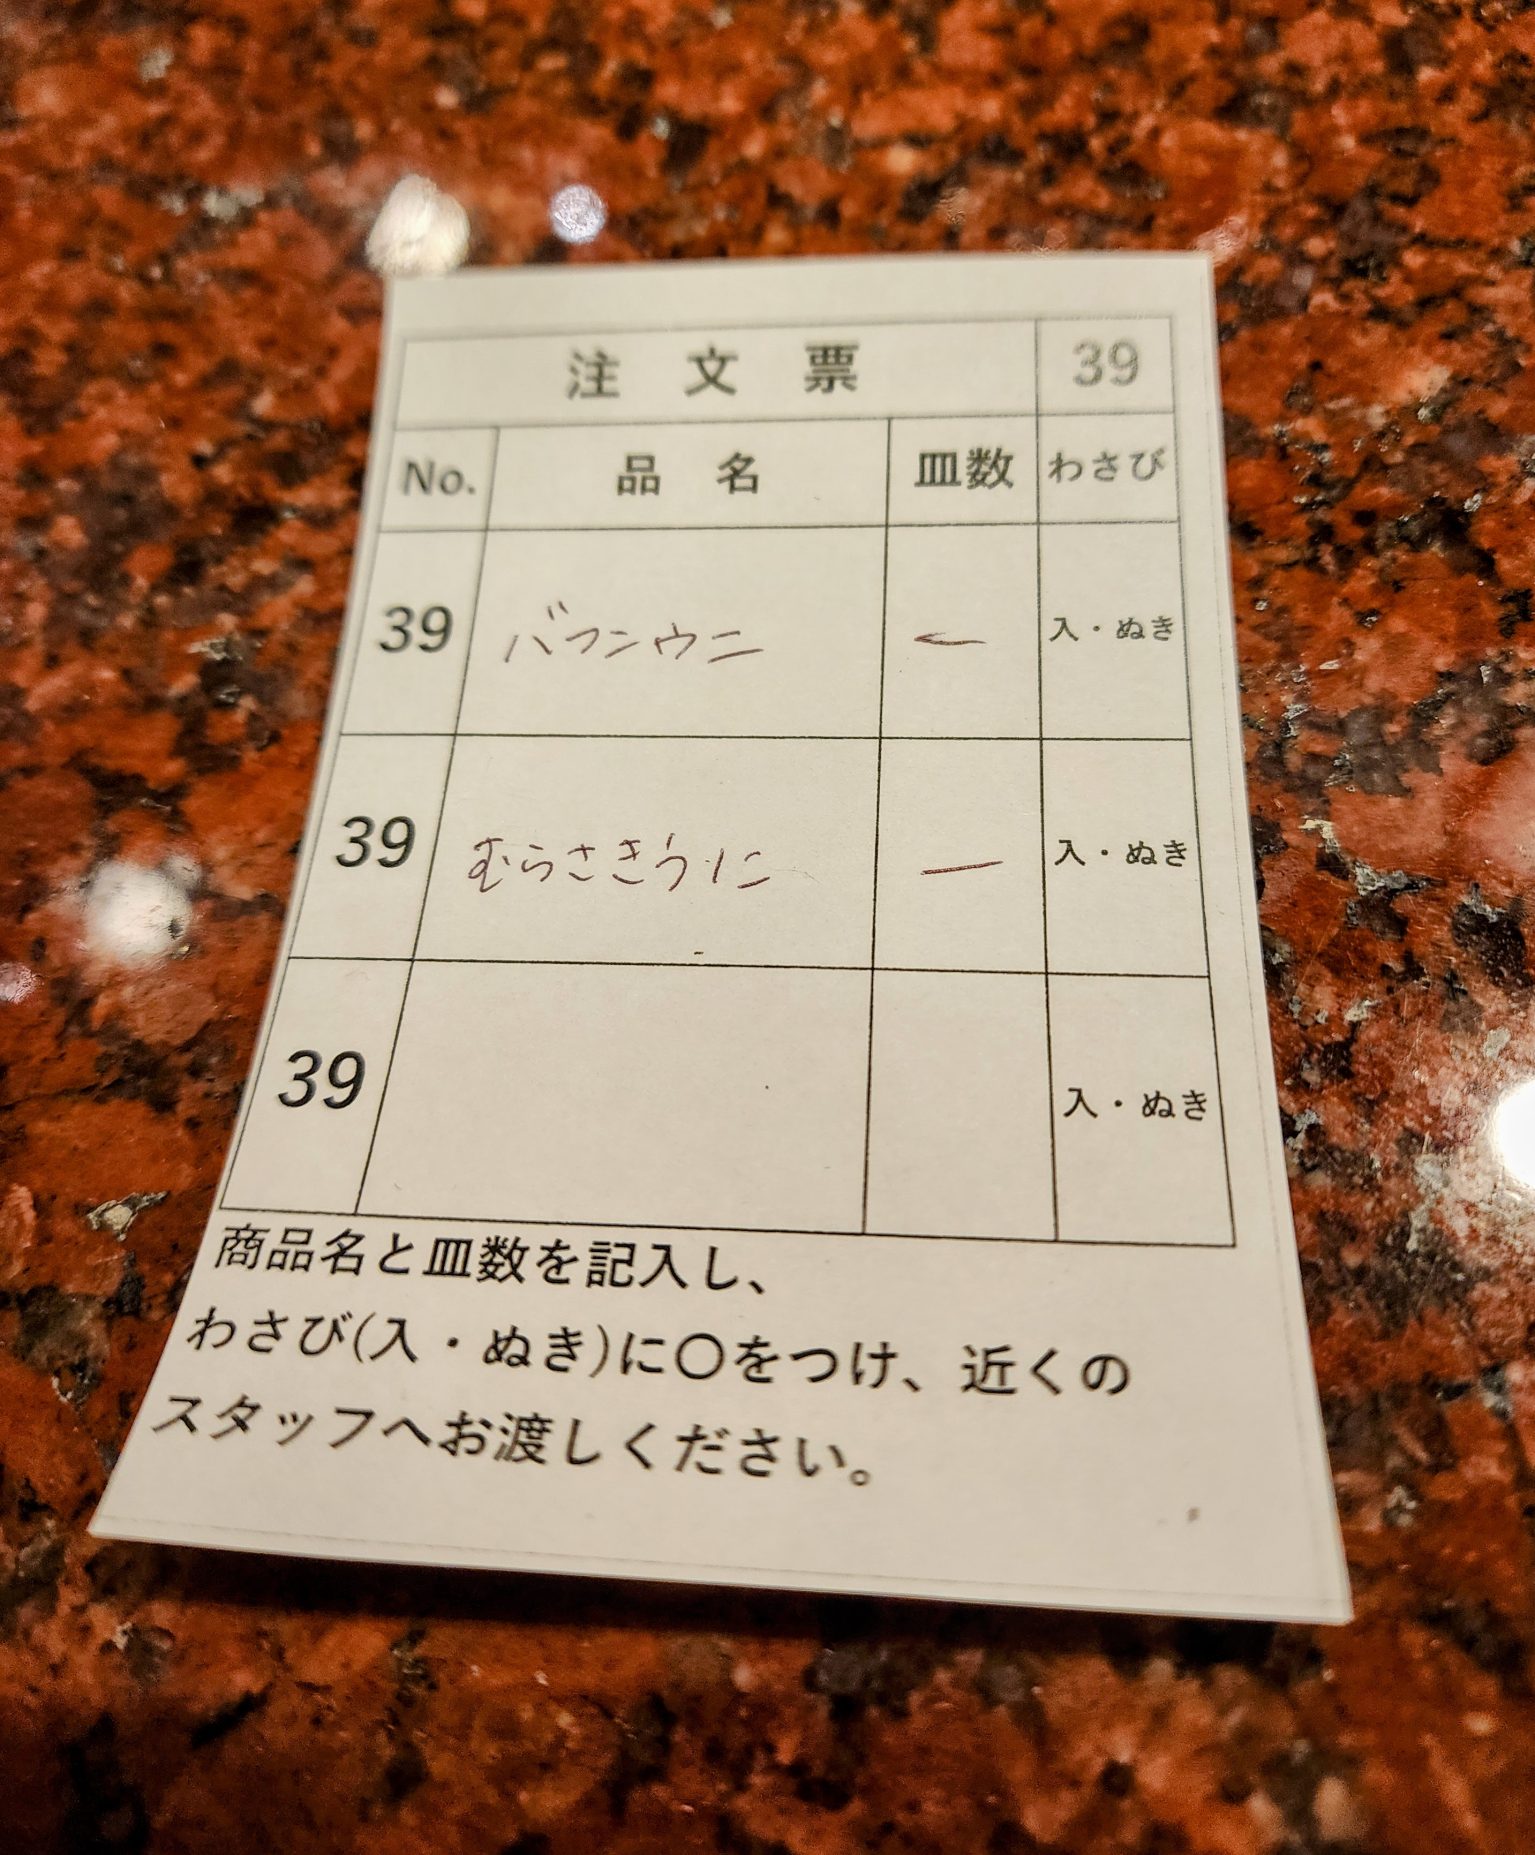 注文票 39
No. 品名 皿数 わさび
39 バフンウニ 一 入・ぬき
39 むらさきうに 一 入・ぬき
39 入・ぬき
商品名と皿数を記入し、
わさび(入・ぬき)に〇をつけ、近くの
スタッフへお渡しください。